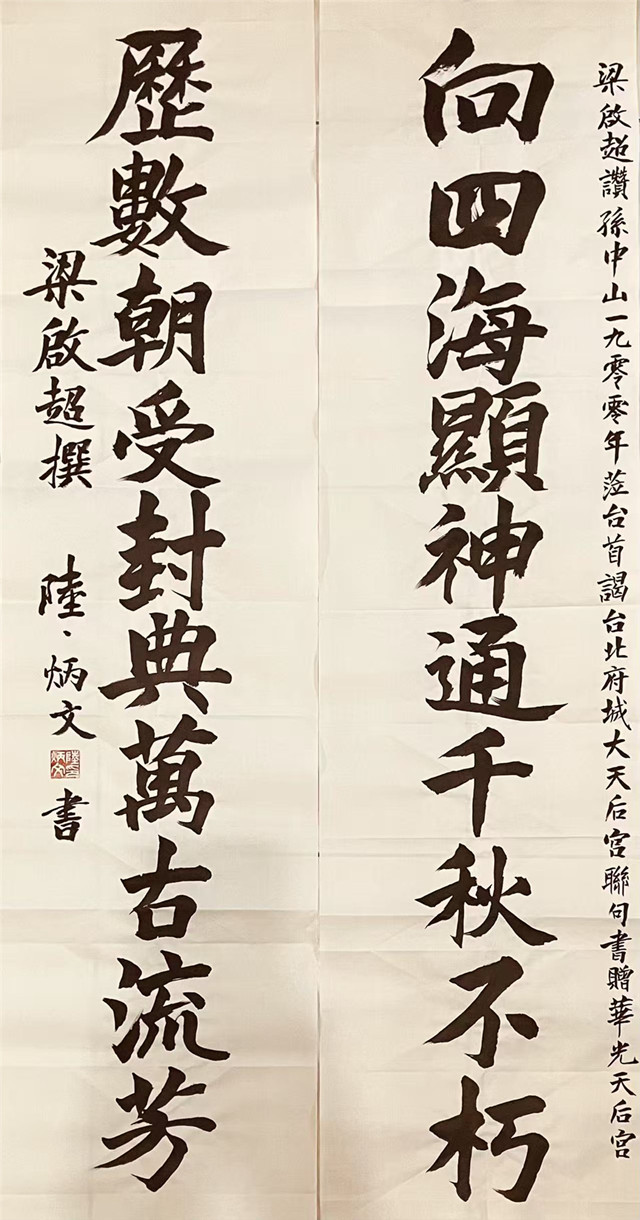 梁啟超讚孫中山一九零零年蒞台首謁台北府城大天后宮聯句書贈華光天后宮
向四海顯神通千秋不朽
歷數朝受封典萬古流芳
梁啟超撰 陸、炳文 書